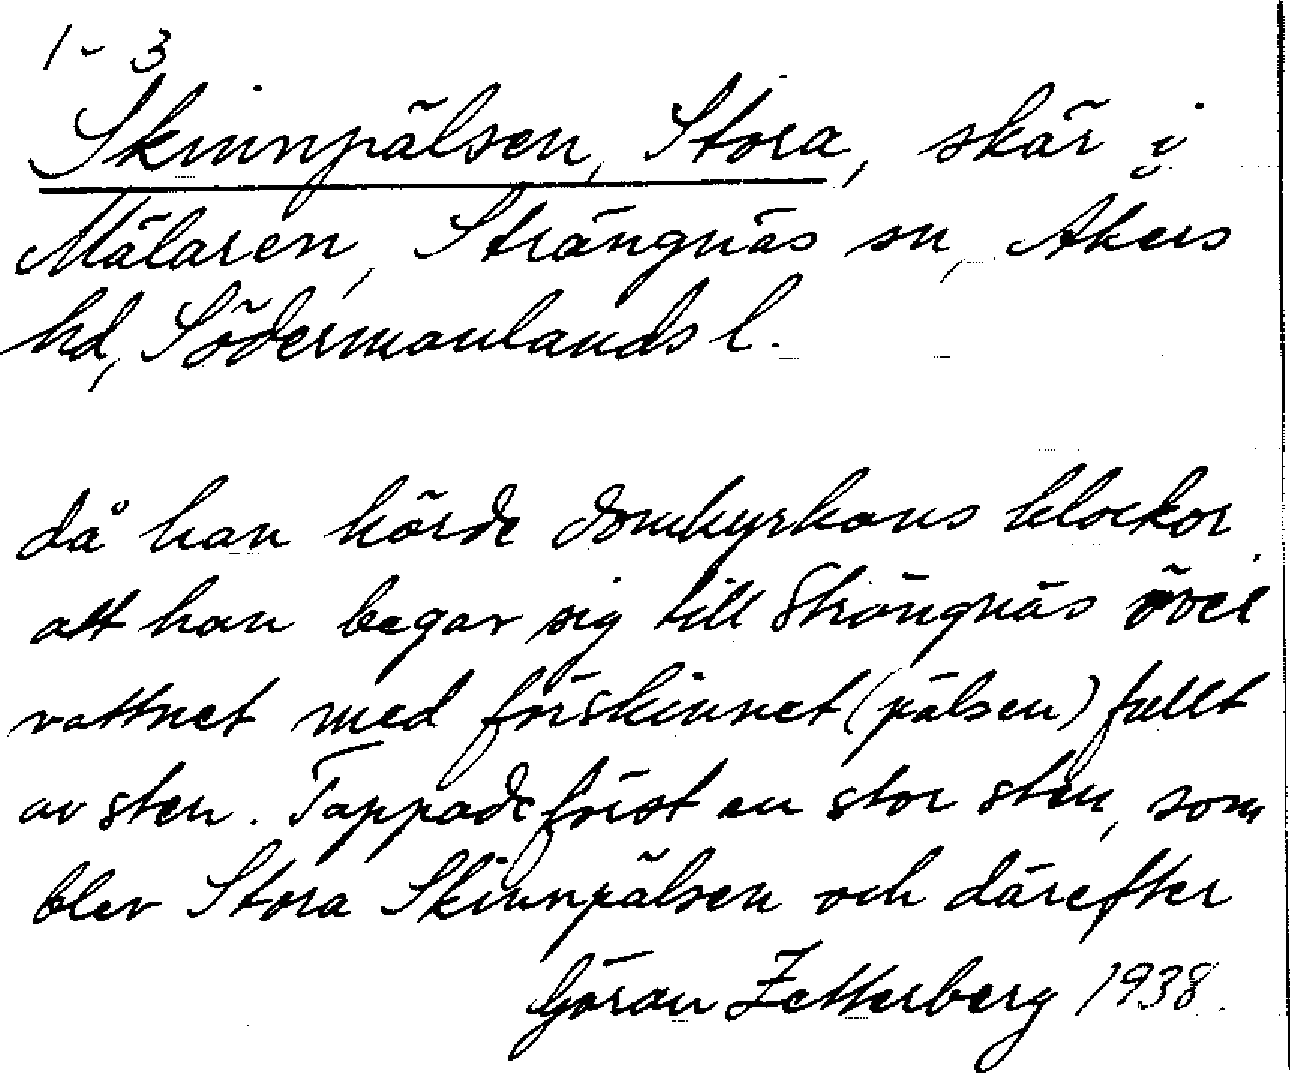 1-3
Skinnpälsen, Stora, skär i
Mälaren, Strängnäs sn, Åkers
hd, Södermanlands l.
då han hörde domkyrkans klockor,
att han begav sig till Strängnäs över
vattnet med förskinnet (pälsen) fullt
av sten. Tappade först en stor sten, som
blev Stora Skinnpälsen och därefter
Göran Zetterberg 1938.